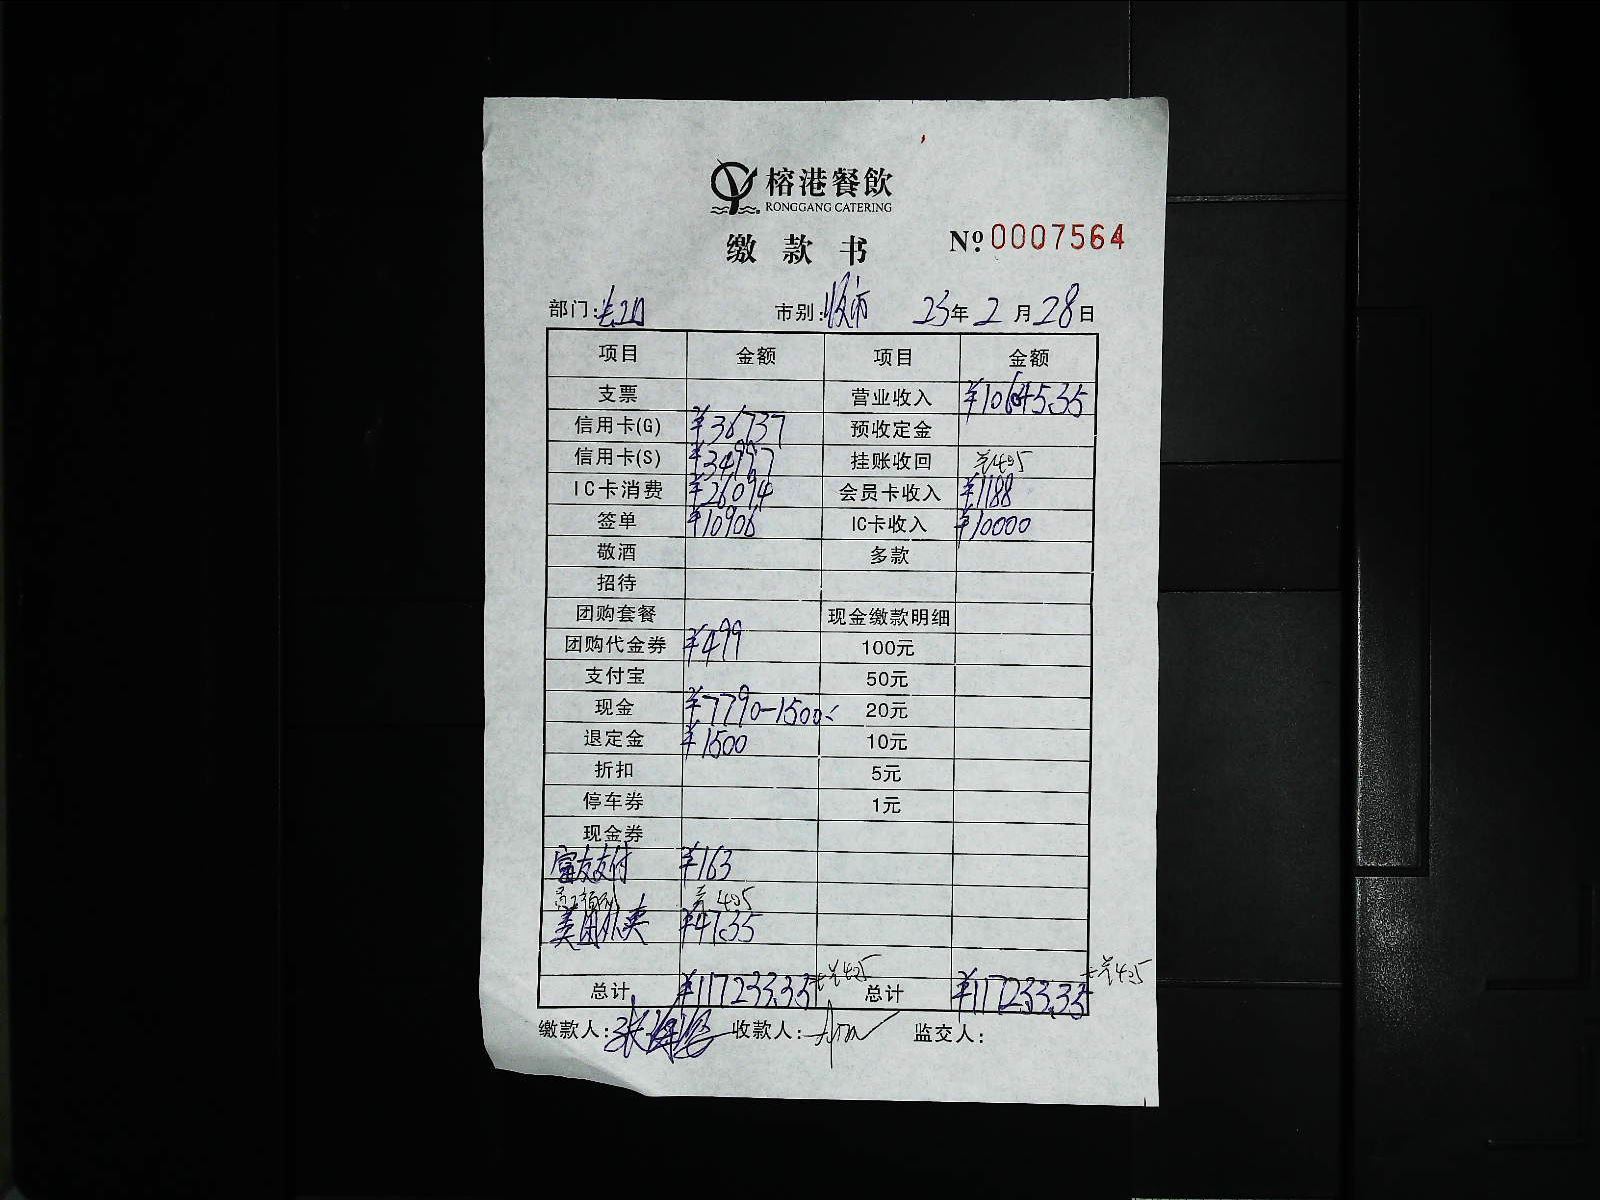 榕港餐飲
RONGGANG CATERING
缴款书 № 0007564
部门: 市别:收市 23年2月28日
项目 金额 项目 金额
支票 营业收入
信用卡(G) ¥36737 预收定金
信用卡(S) 挂账收回 ¥405
IC卡消费 ¥26094 会员卡收入 ¥1188
签单 ¥10906 IC卡收入 ¥10000
敬酒 多款
招待
团购套餐 现金缴款明细
团购代金券 ¥499 100元
支付宝 50元
现金 ¥7790-1500 20元
退定金 ¥1500 10元
折扣 5元
停车券 1元
现金券
富友支付 ¥163
405
美团外卖 ¥47.35
总计 ¥117233.35+¥405 总计 ¥117233.35+¥405
缴款人: 收款人: 监交人: